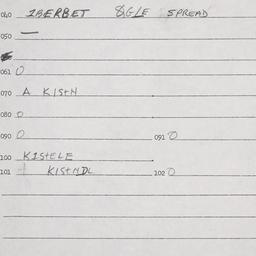 040 IBERBET &GLE SPREAD
050 —
061 0
070 A KISTN
080 0
090 0 091 0
100 KISTELE
101 KISTNDL 102 0